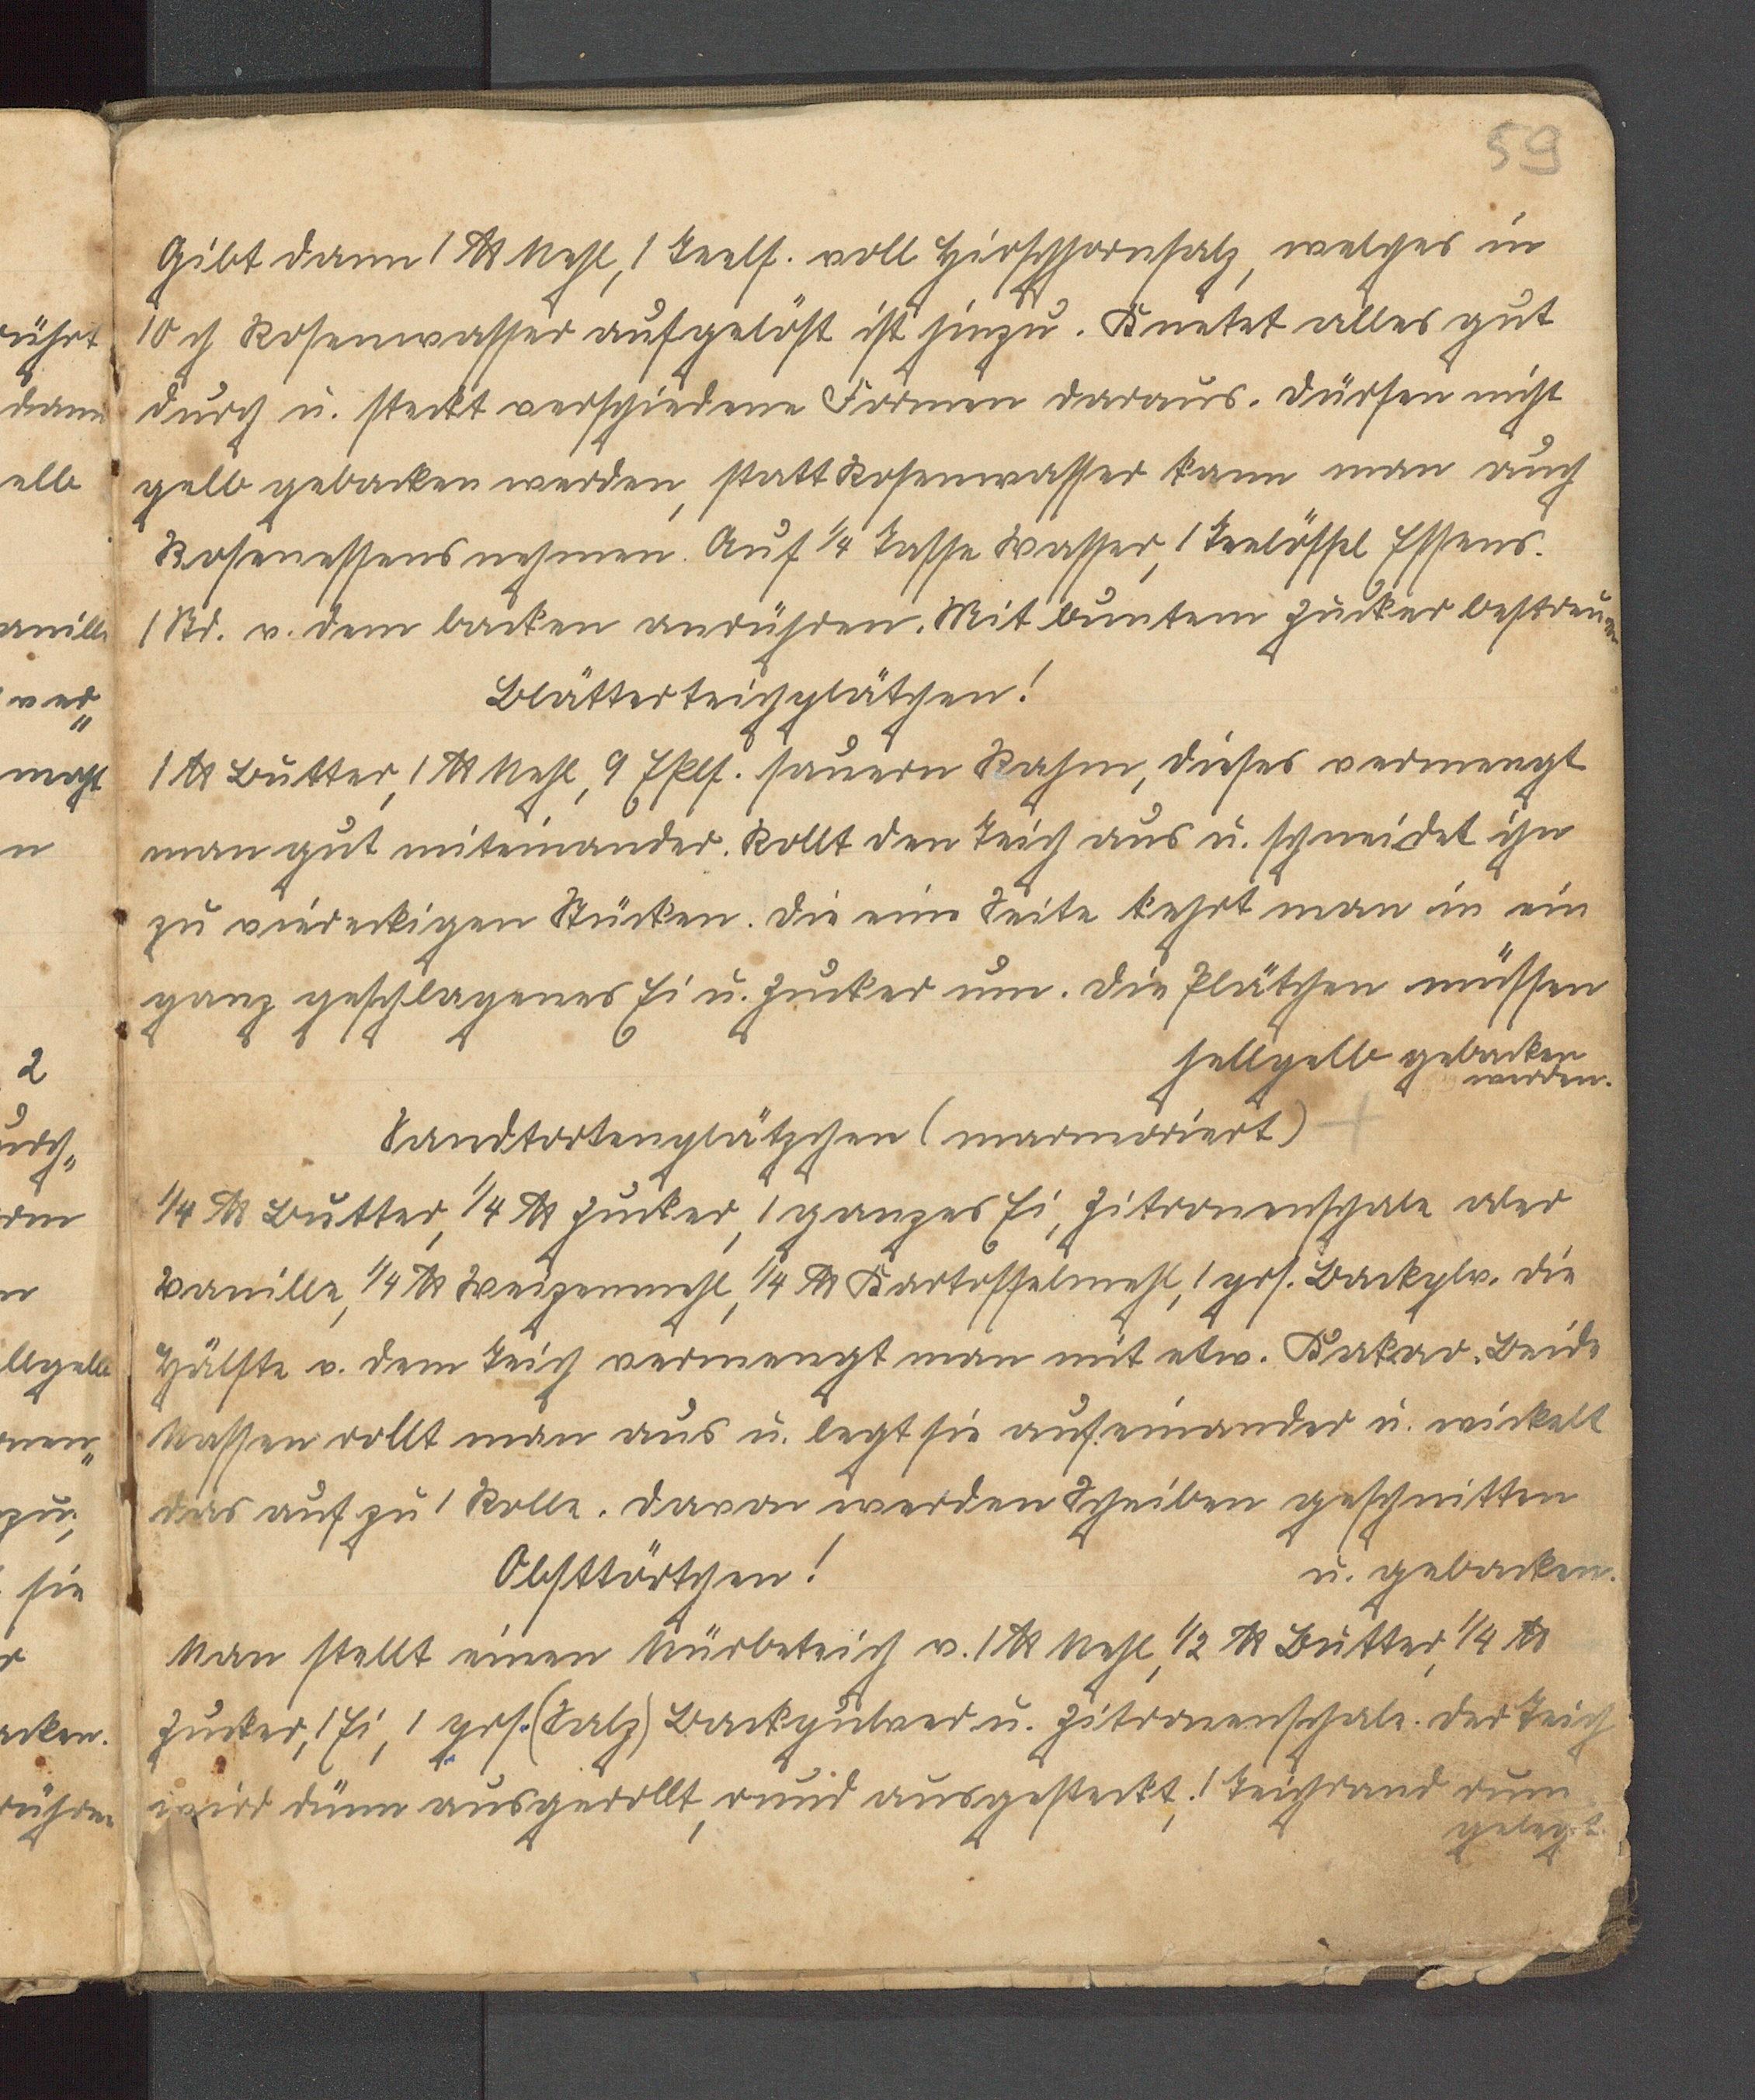 59
Gibt dann 1 ℔ Mehl, 1 Teelf. voll Hirschhornsalz, welches in
10 ch Rosenwasser aufgelöst ist hinzu. Knetet alles gut
durch u. steckt verschiedene Formen daraus. Dürfen nicht
gelb gebacken werden, statt Rosenwasser kann man auch
Rosenessens nehmen. Auf 1/4 Tasse Wasser, 1 Teelöffel Essens.
1 Std. v. dem backen anrühren. Mit buntem Zucker bestreuen
Blätterteichplätchen!
1 ℔ Butter, 1 ℔ Mehl, 9 Eßlf. sauern Rahm, dieses vermengt
man gut miteinander. Rollt den Teich aus u. schneidet ihn
zu viereckigen Stücken. Die eine Seite kehrt man in ein
ganz geschlagenes Ei u. Zucker um. Die Plätchen müssen
hellgelb gebacken
werden.
Sandtortenplätzchen (marmoriert) +
1/4 ℔ Butter, 1/4 ℔ Zucker, 1 ganzes Ei, Zitronenschale oder
Vanille, 1/4 ℔ Weizenmehl, 1/4 ℔ Kartoffelmehl, 1 grs. Backplv. Die
Hälfte v. dem Teich vermengt man mit etw. Kakao. Beide
Massen rollt man aus u. legt sie aufeinander u. wickelt
das auf zu 1 Rolle. Davon werden Scheiben geschnitten
u. gebacken.
Obsttörtchen!
Man stellt einen Mürbeteich v. 1 ℔ Mehl, 1/2 ℔ Butter, 1/4 ℔
Zucker, 1 Ei, 1 grs. (Salz) Backpulver u. Zitronenschale. Der Teich
wird dünn ausgerollt, rund ausgesteckt, 1 Teichrand rum
gelegt